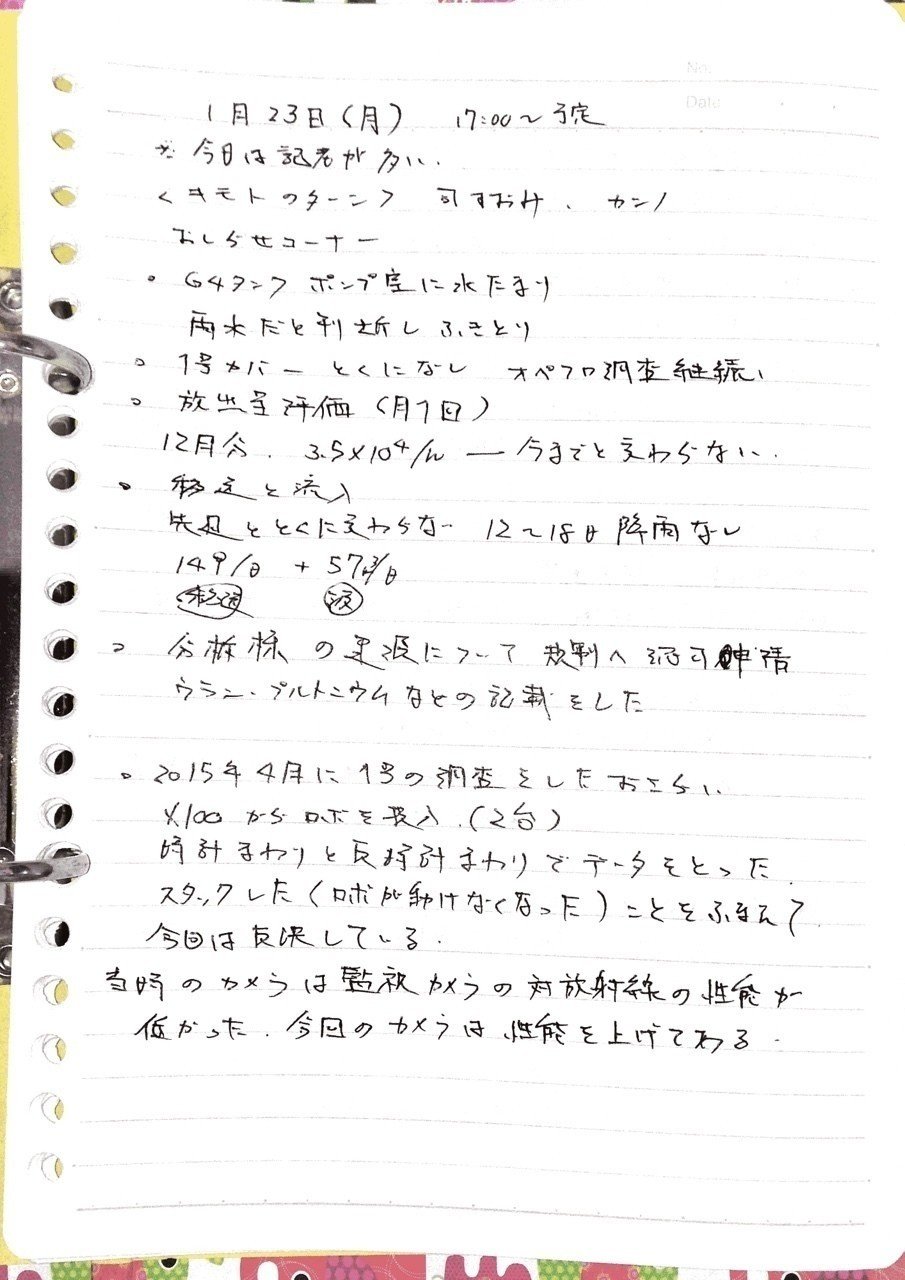 No.
Date
1月23日(月) 17:00〜予定
※今日は記者が多い.
<キモトのターン> 司 すおみ、カンノ
おしらせコーナー
・G4タンク ポンプ室に水たまり
雨水だと判断しふきとり
・1号カバー とくになし オペフロ調査継続
・放出量評価(月1回)
12月分. 3.5×10⁴/h ― 今までと変わらない.
・移送と流入
先週ととくに変わらない 12〜18日 降雨なし
149/日 + 57㎥/日
移送
・の運渡について 規制へ認可申請
ウラン・プルトニウムなどの記載をした
・2015年4月に1号の調査をしたおさらい
X100からロボを投入.(2台)
時計まわりと反時計まわりでデータをとった.
スタックした(ロボが動けなくなった)ことをふまえて
今回は反映している.
当時のカメラは監視カメラの対放射線の性能が
低かった.今回のカメラは性能を上げてある.